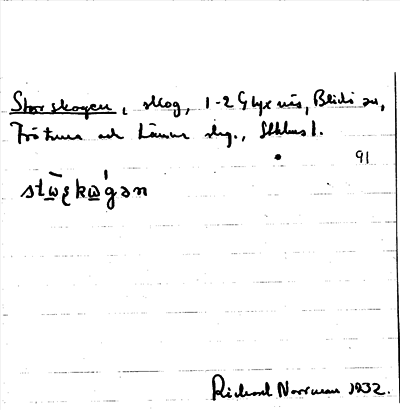 Storskogen, skog, 1-2 Glyxnäs, Blidö sn,
Frötuna och Länna skg., Sthlms l.
91
stὼʂkω´gən
Richard Norrman 1932.